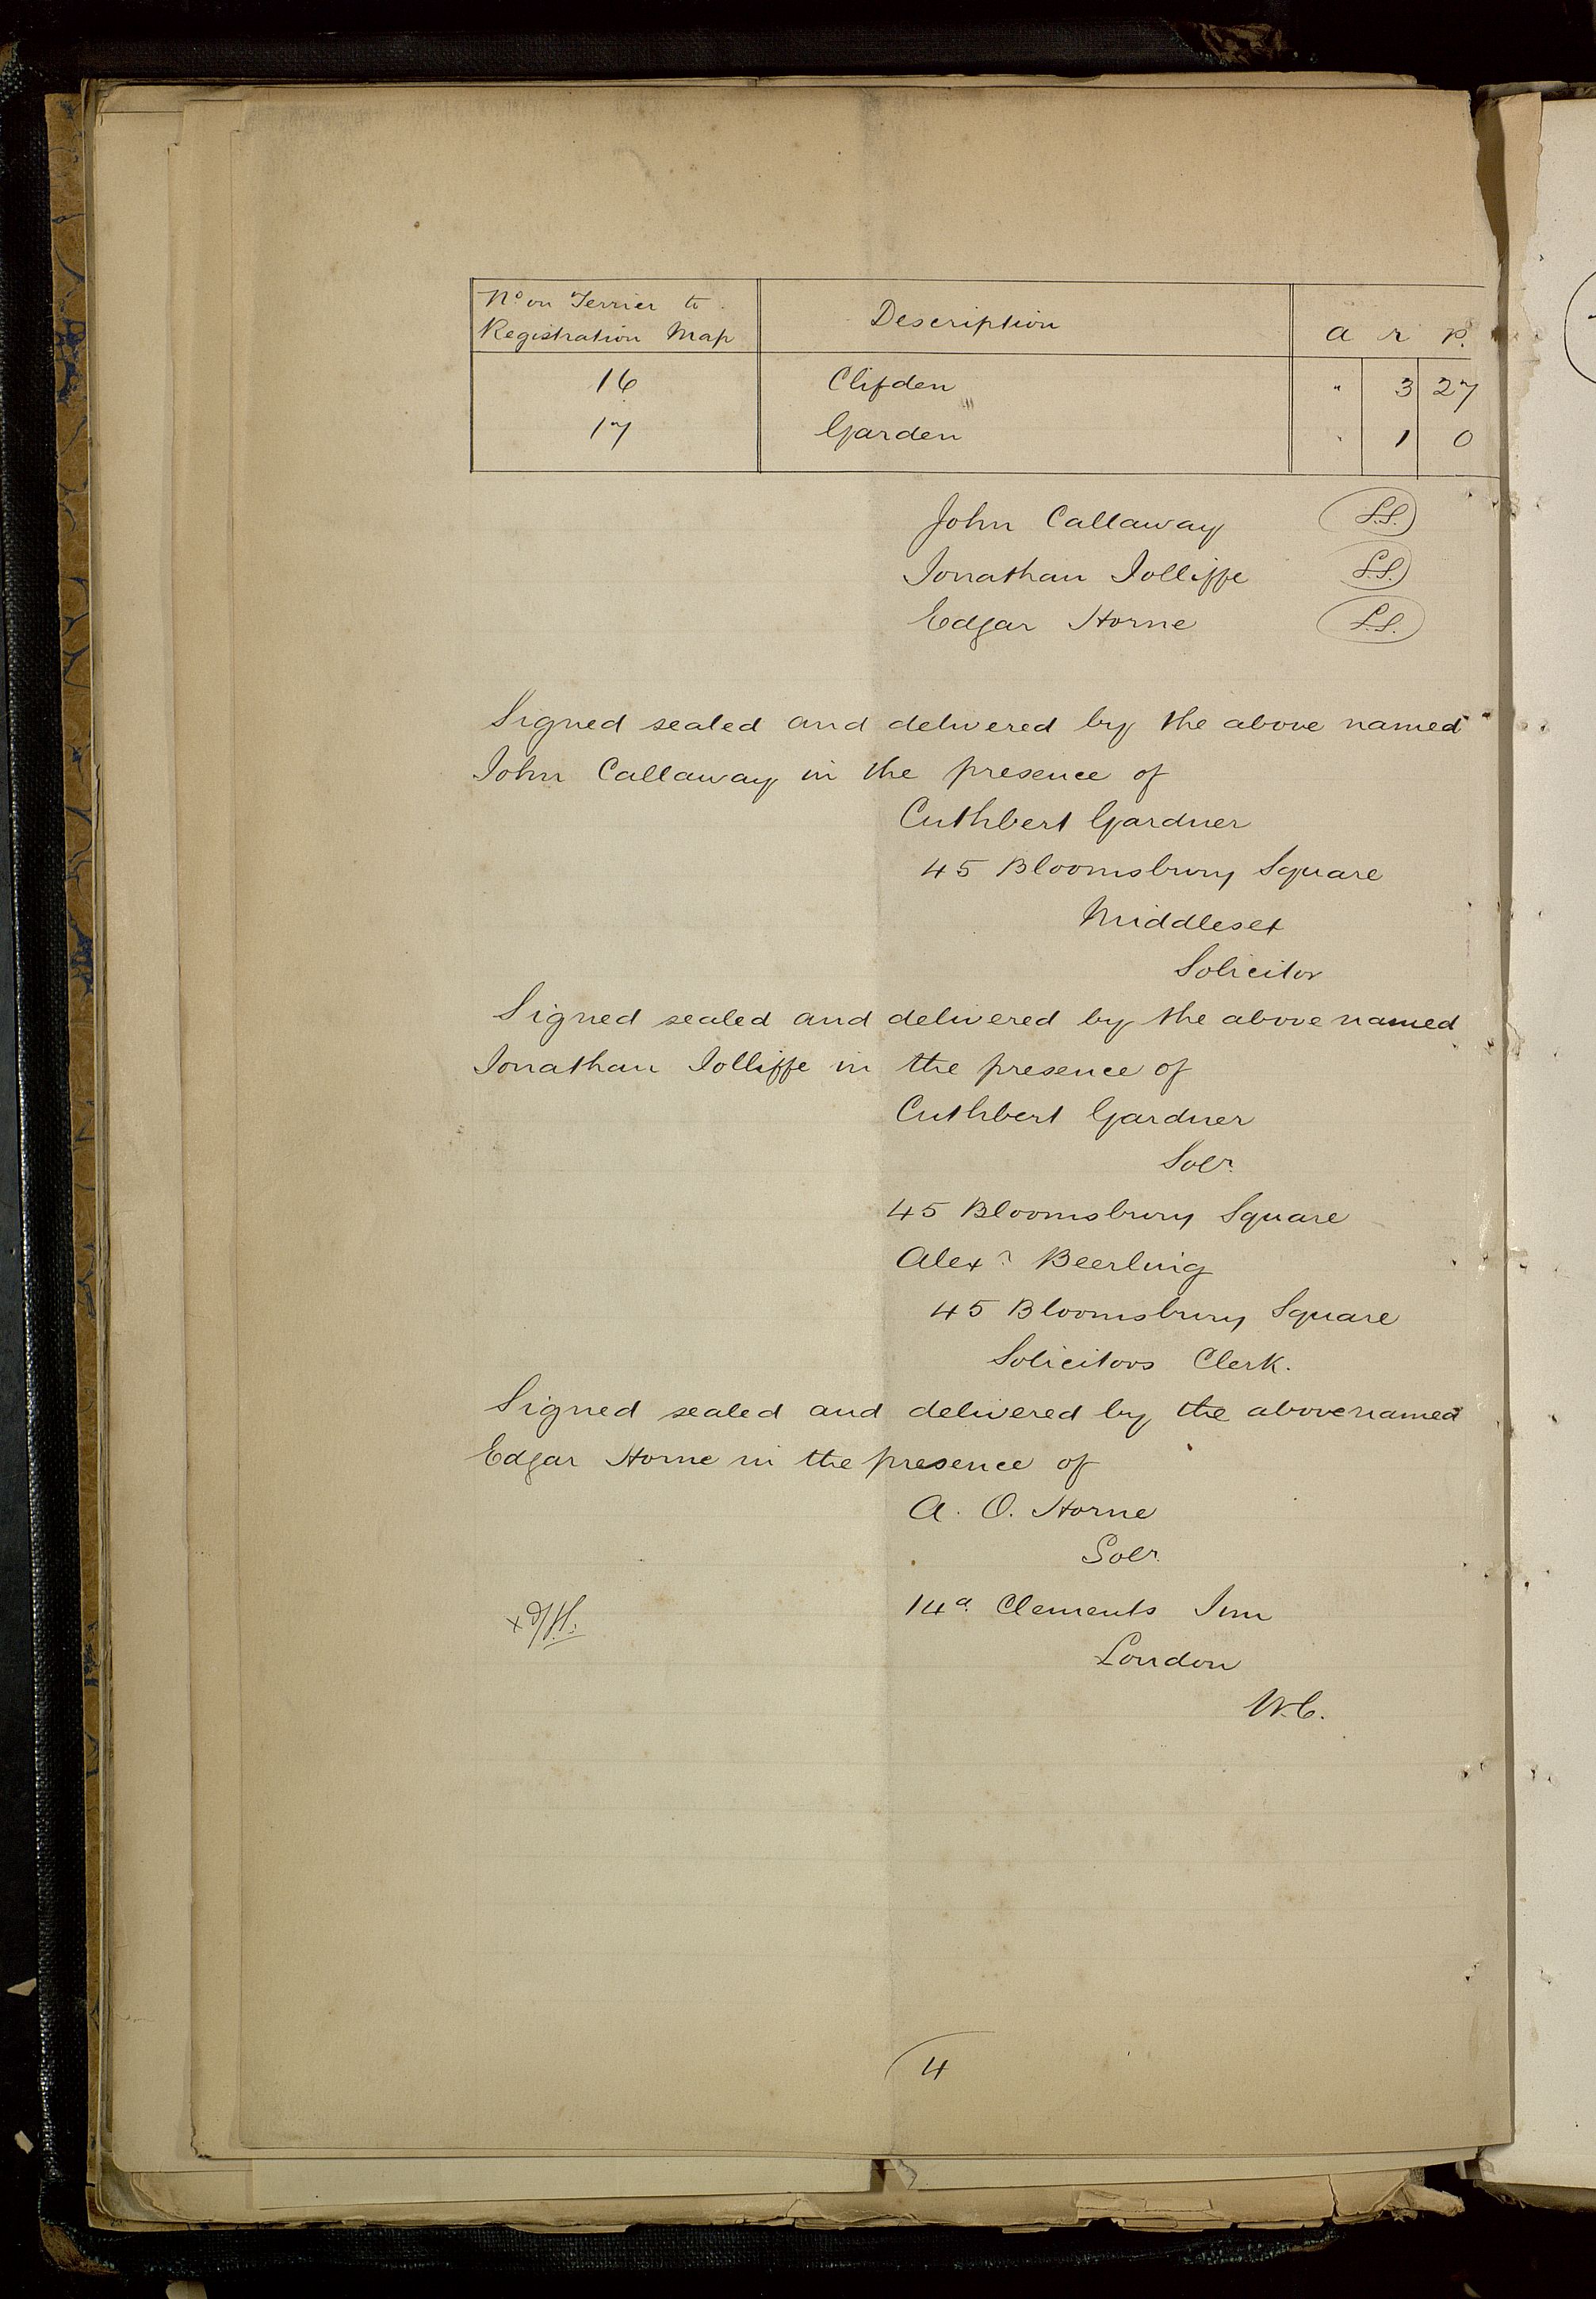 No on Terrier to Registration Map | Description | a r p.
16 | Clifden | " 3 27
17 | Garden | " 1 0
John Callaway L.S.
Jonathan Jolliffe L.S.
Edgar Horne L.S.
Signed sealed and delivered by the above named
John Callaway in the presence of
Cuthbert Gardner
45 Bloomsbury Square
Middlesex
Solicitor
Signed sealed and delivered by the above named
Jonathan Jolliffe in the presence of
Cuthbert Gardner
Solr.
45 Bloomsbury Square
Alexr. Beerling
45 Bloomsbury Square
Solicitors Clerk.
Signed sealed and delivered by the abovenamed
Edgar Horne in the presence of
A. O. Horne
Solr.
14a. Clements Inn
London
W.C.
4